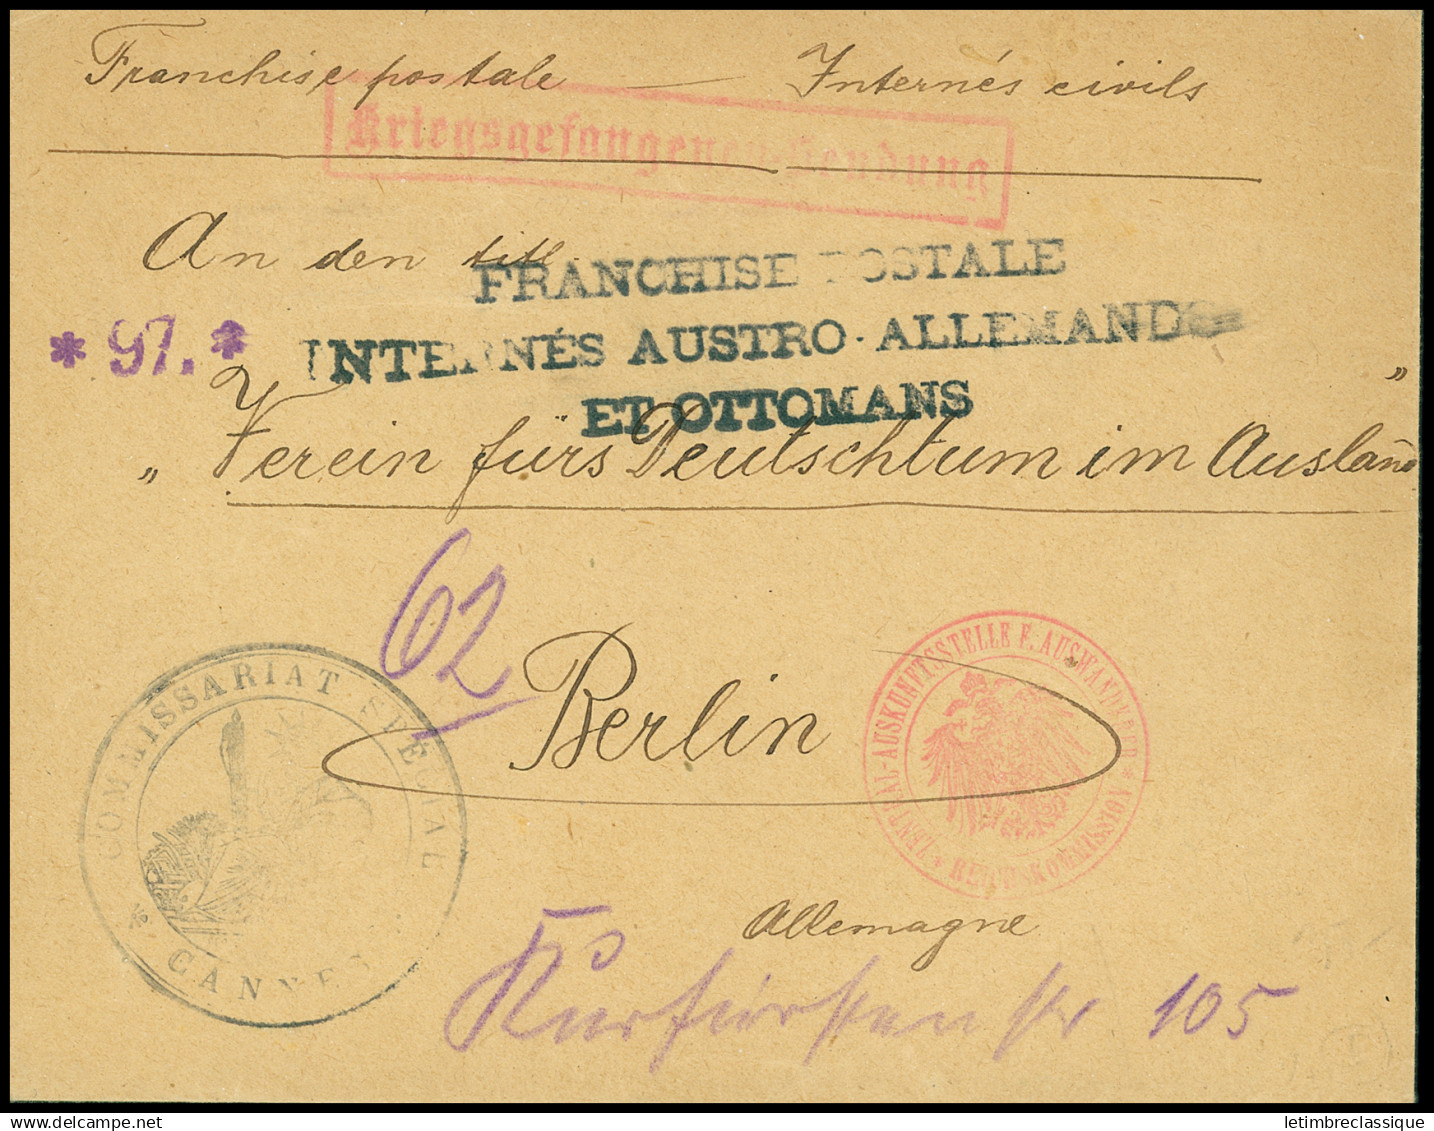 Franchise postale — Internés civils
Kriegsgefangenen-Sendung
An den titl.
FRANCHISE POSTALE
* 97. *
INTERNÉS AUSTRO-ALLEMANDS
ET OTTOMANS
„ Verein fürs Deutschtum im Ausland "
62
Berlin
COMMISSARIAT SPÉCIAL
CANNES
ZENTRAL-AUSKUNFTSSTELLE F. AUSWANDERER * REICHSKOMMISSION *
Allemagne
Kurfürsten str 105
www.delcampe.net
letimbreclassique